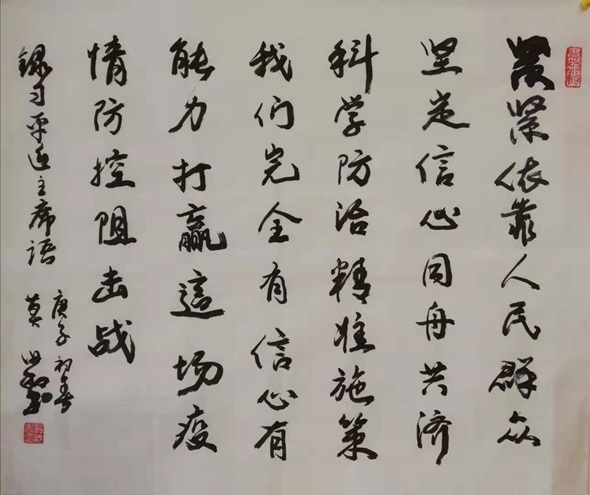 紧紧依靠人民群众
坚定信心同舟共济
科学防治精准施策
我们完全有信心有
能力打赢這场疫
情防控阻击战
録习平近主席语
庚子初春
莫